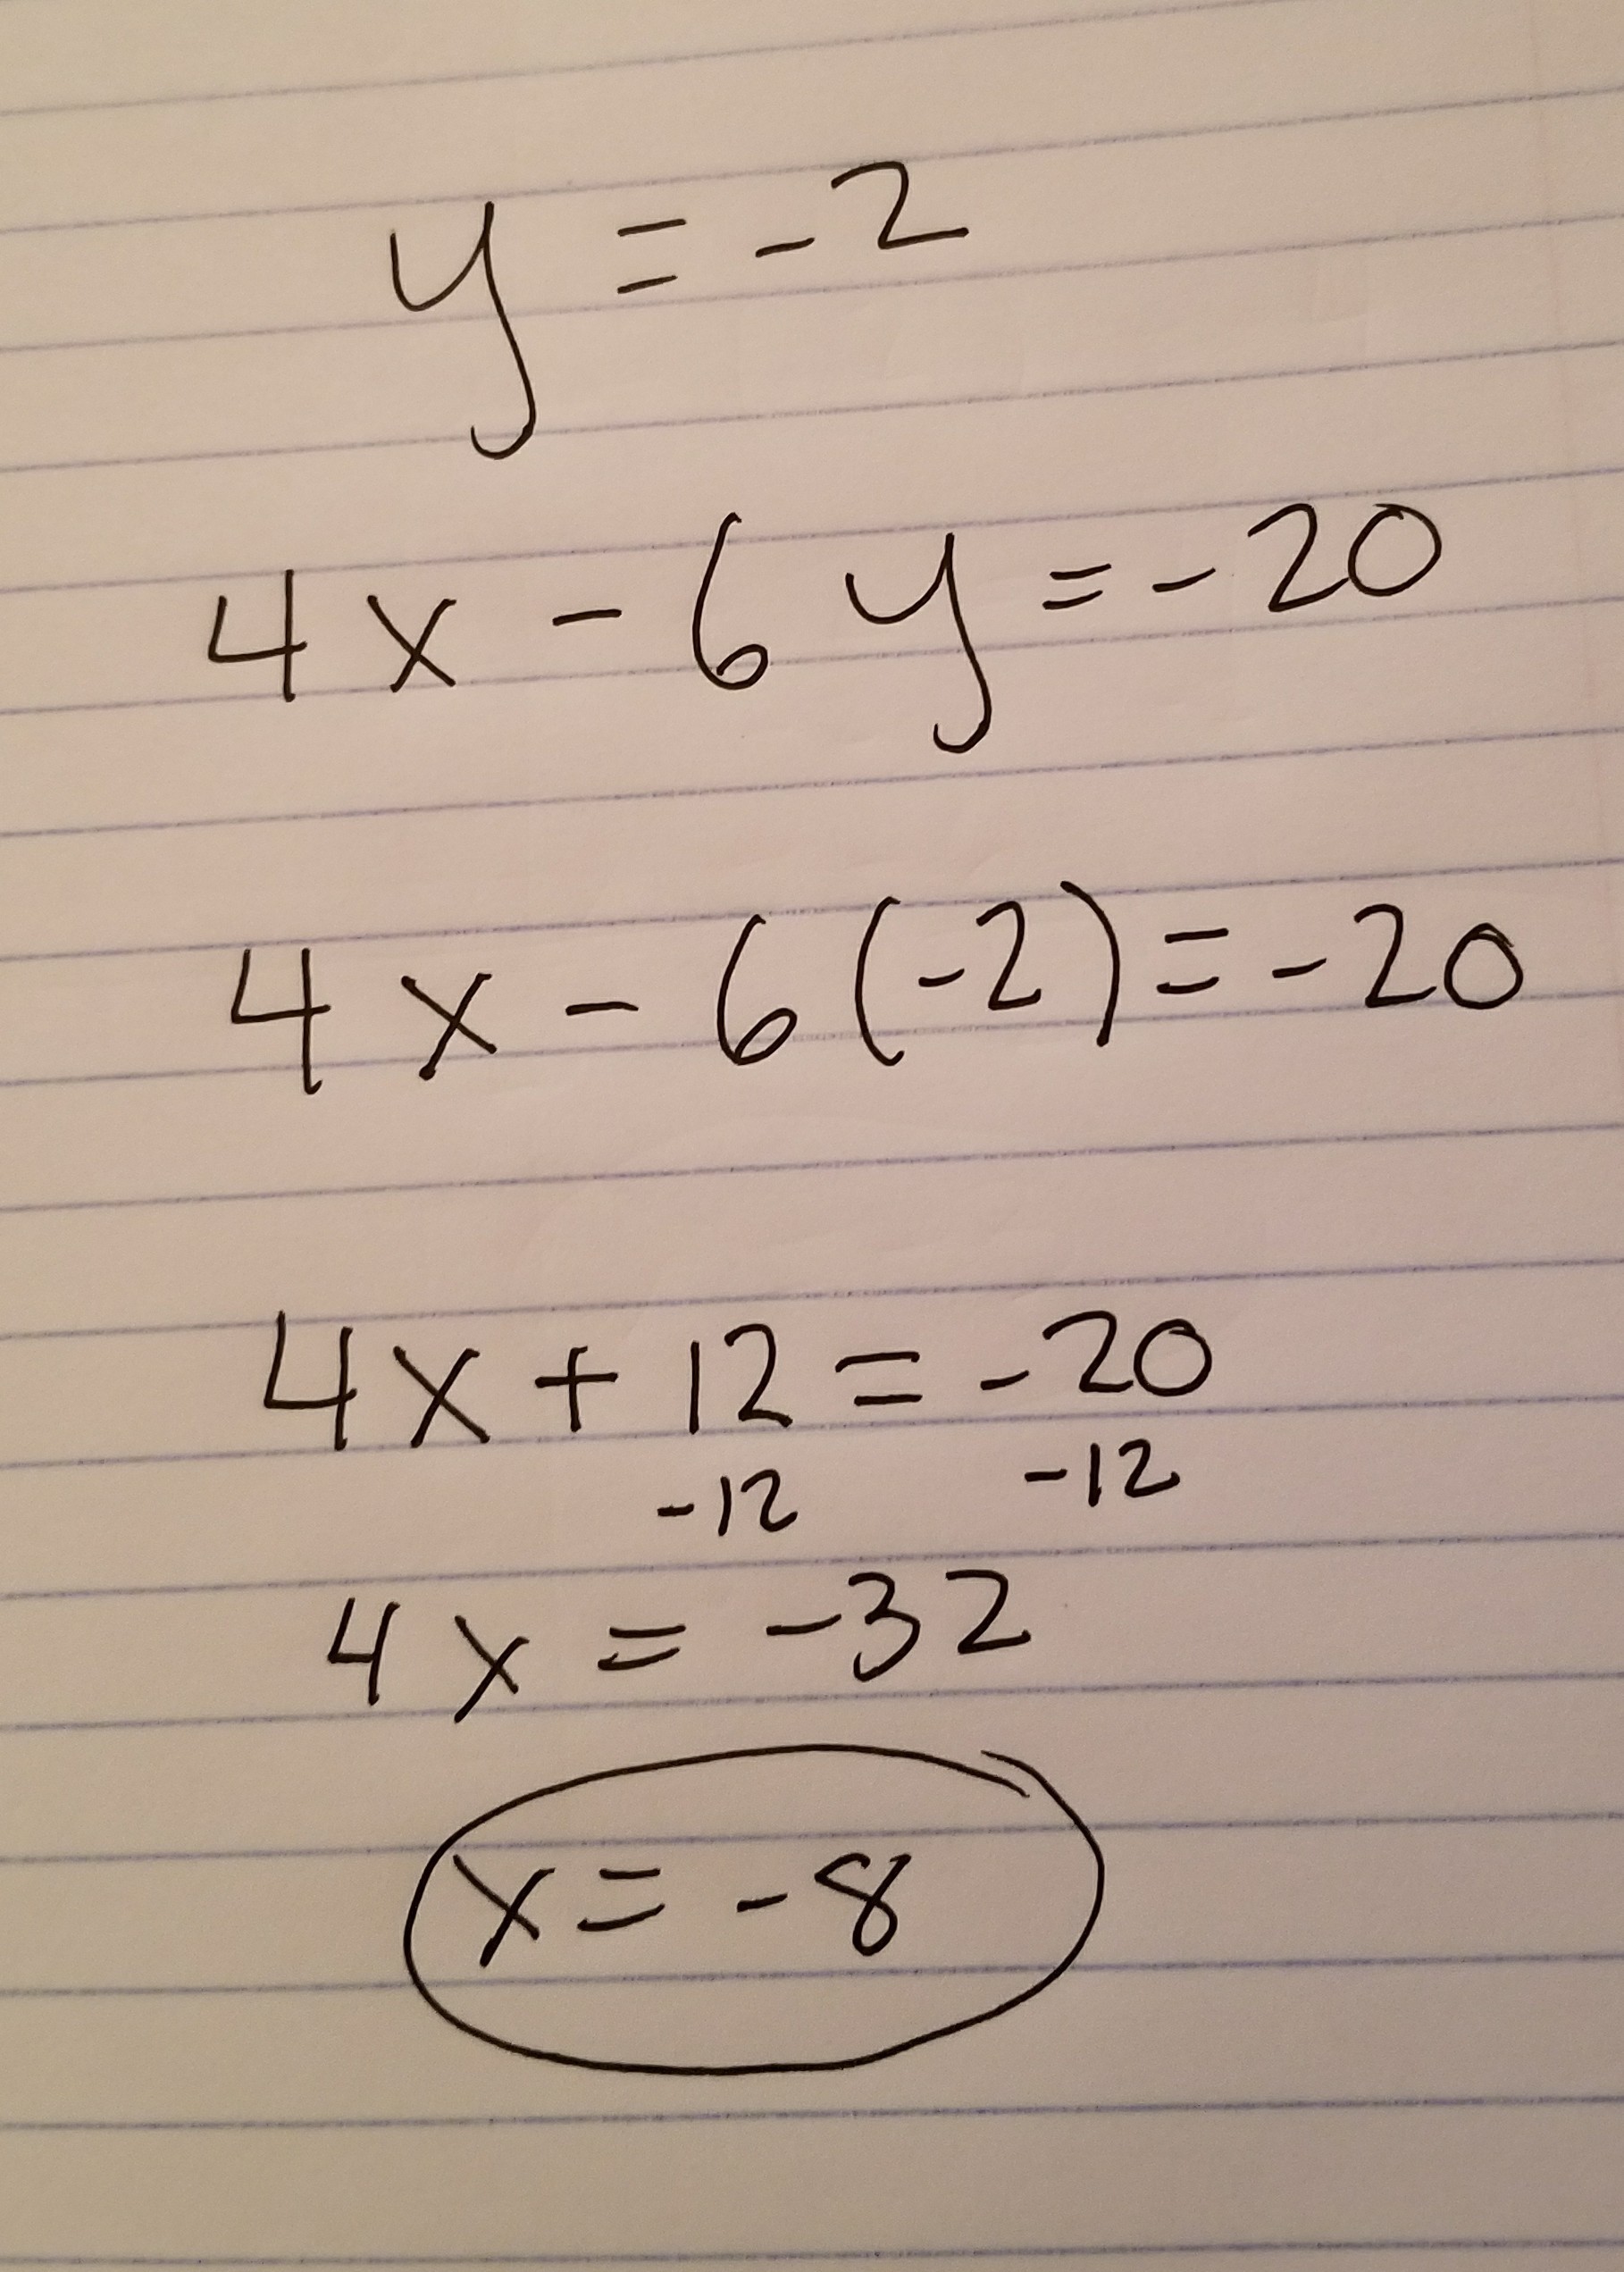 y = -2
4x - 6y = -20
4x - 6(-2) = -20
4x + 12 = -20
-12 -12
4x = -32
x = -8